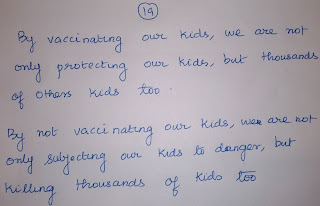 19
By vaccinating our kids, we are not
only protecting our kids, but thousands
of others kids too.
By not vaccinating our kids, we are not
only subjecting our kids to danger, but
killing thousands of kids too